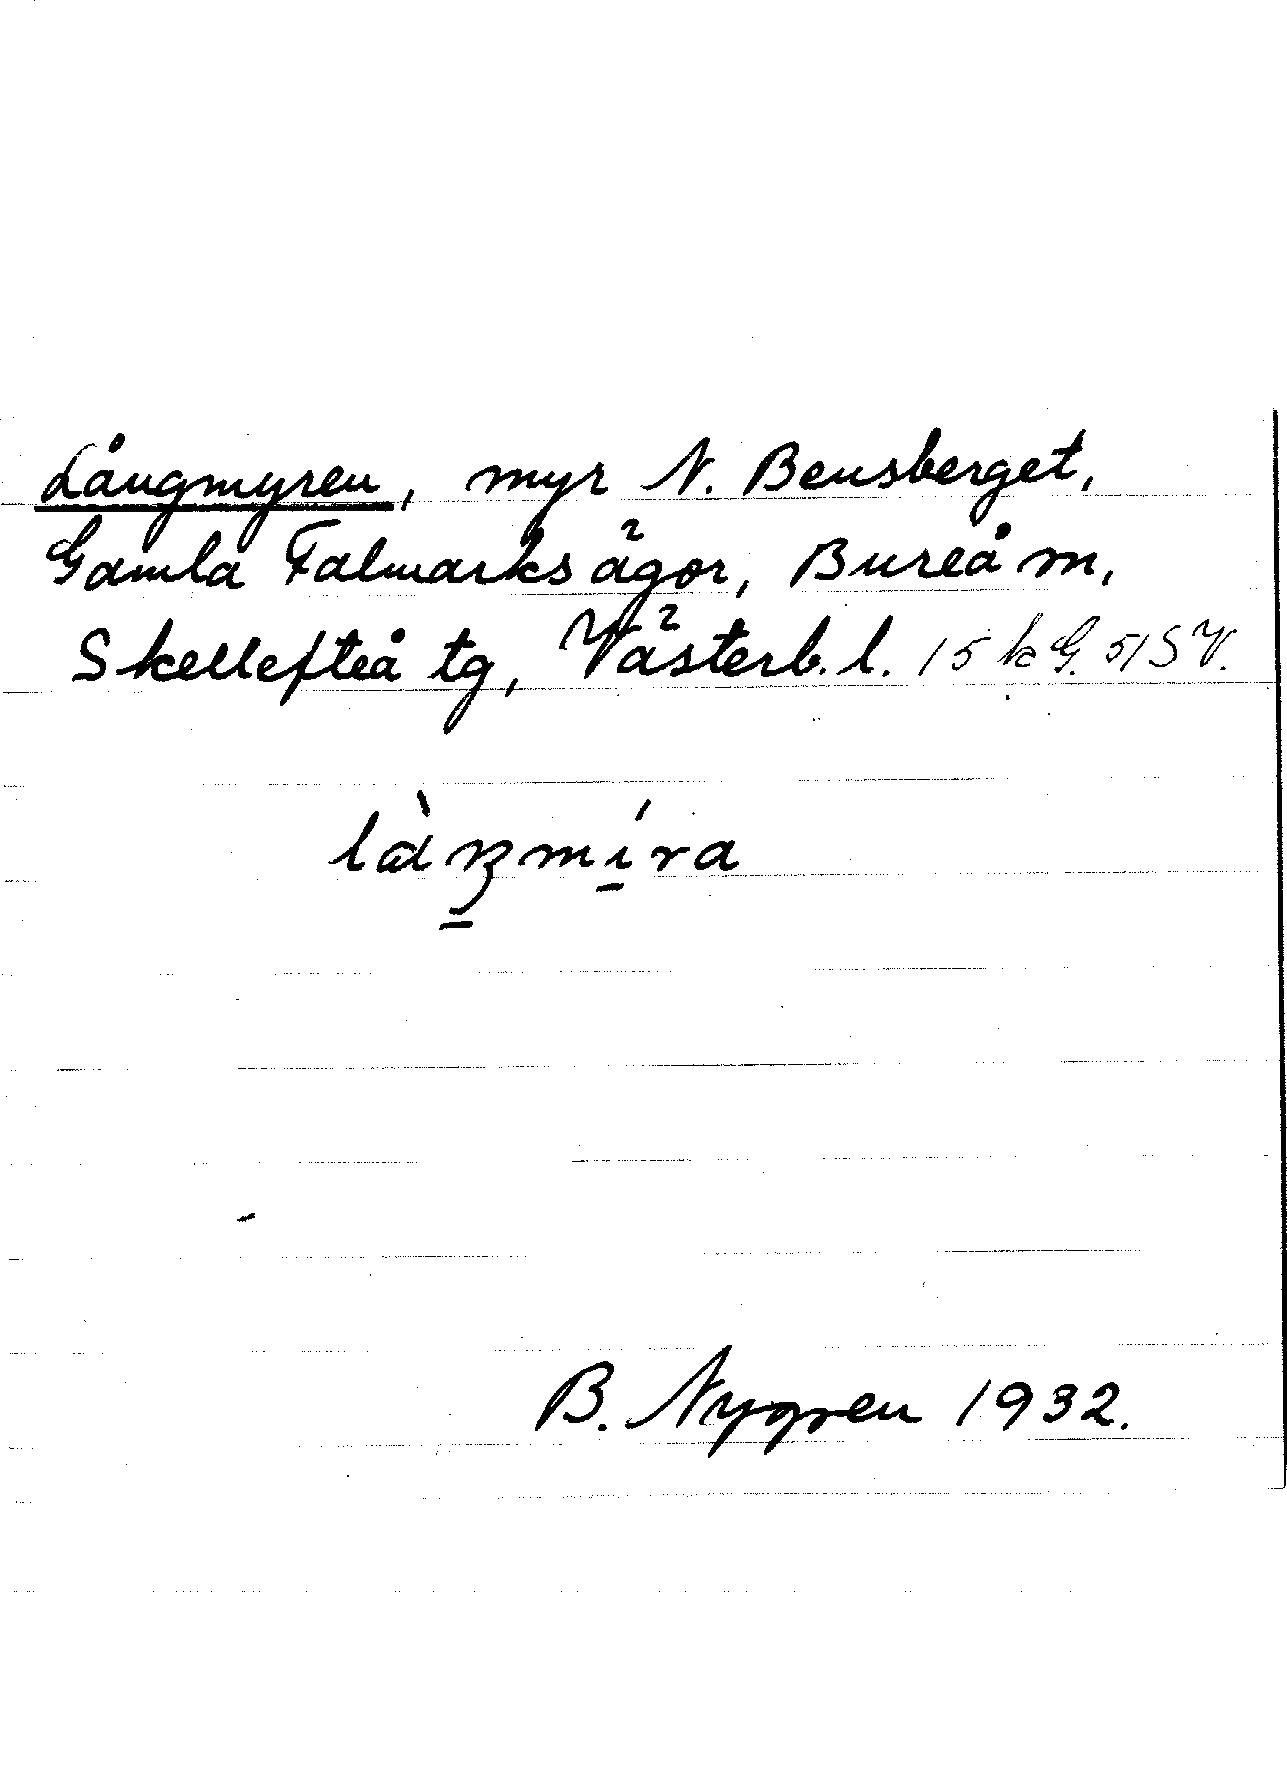 Långmyren, myr N. Bensberget,
Gamla Falmarks ägor, Bureå m,
Skellefteå tg, Västerb. l. 15 k G. 51 SV.
B. Nygren 1932.